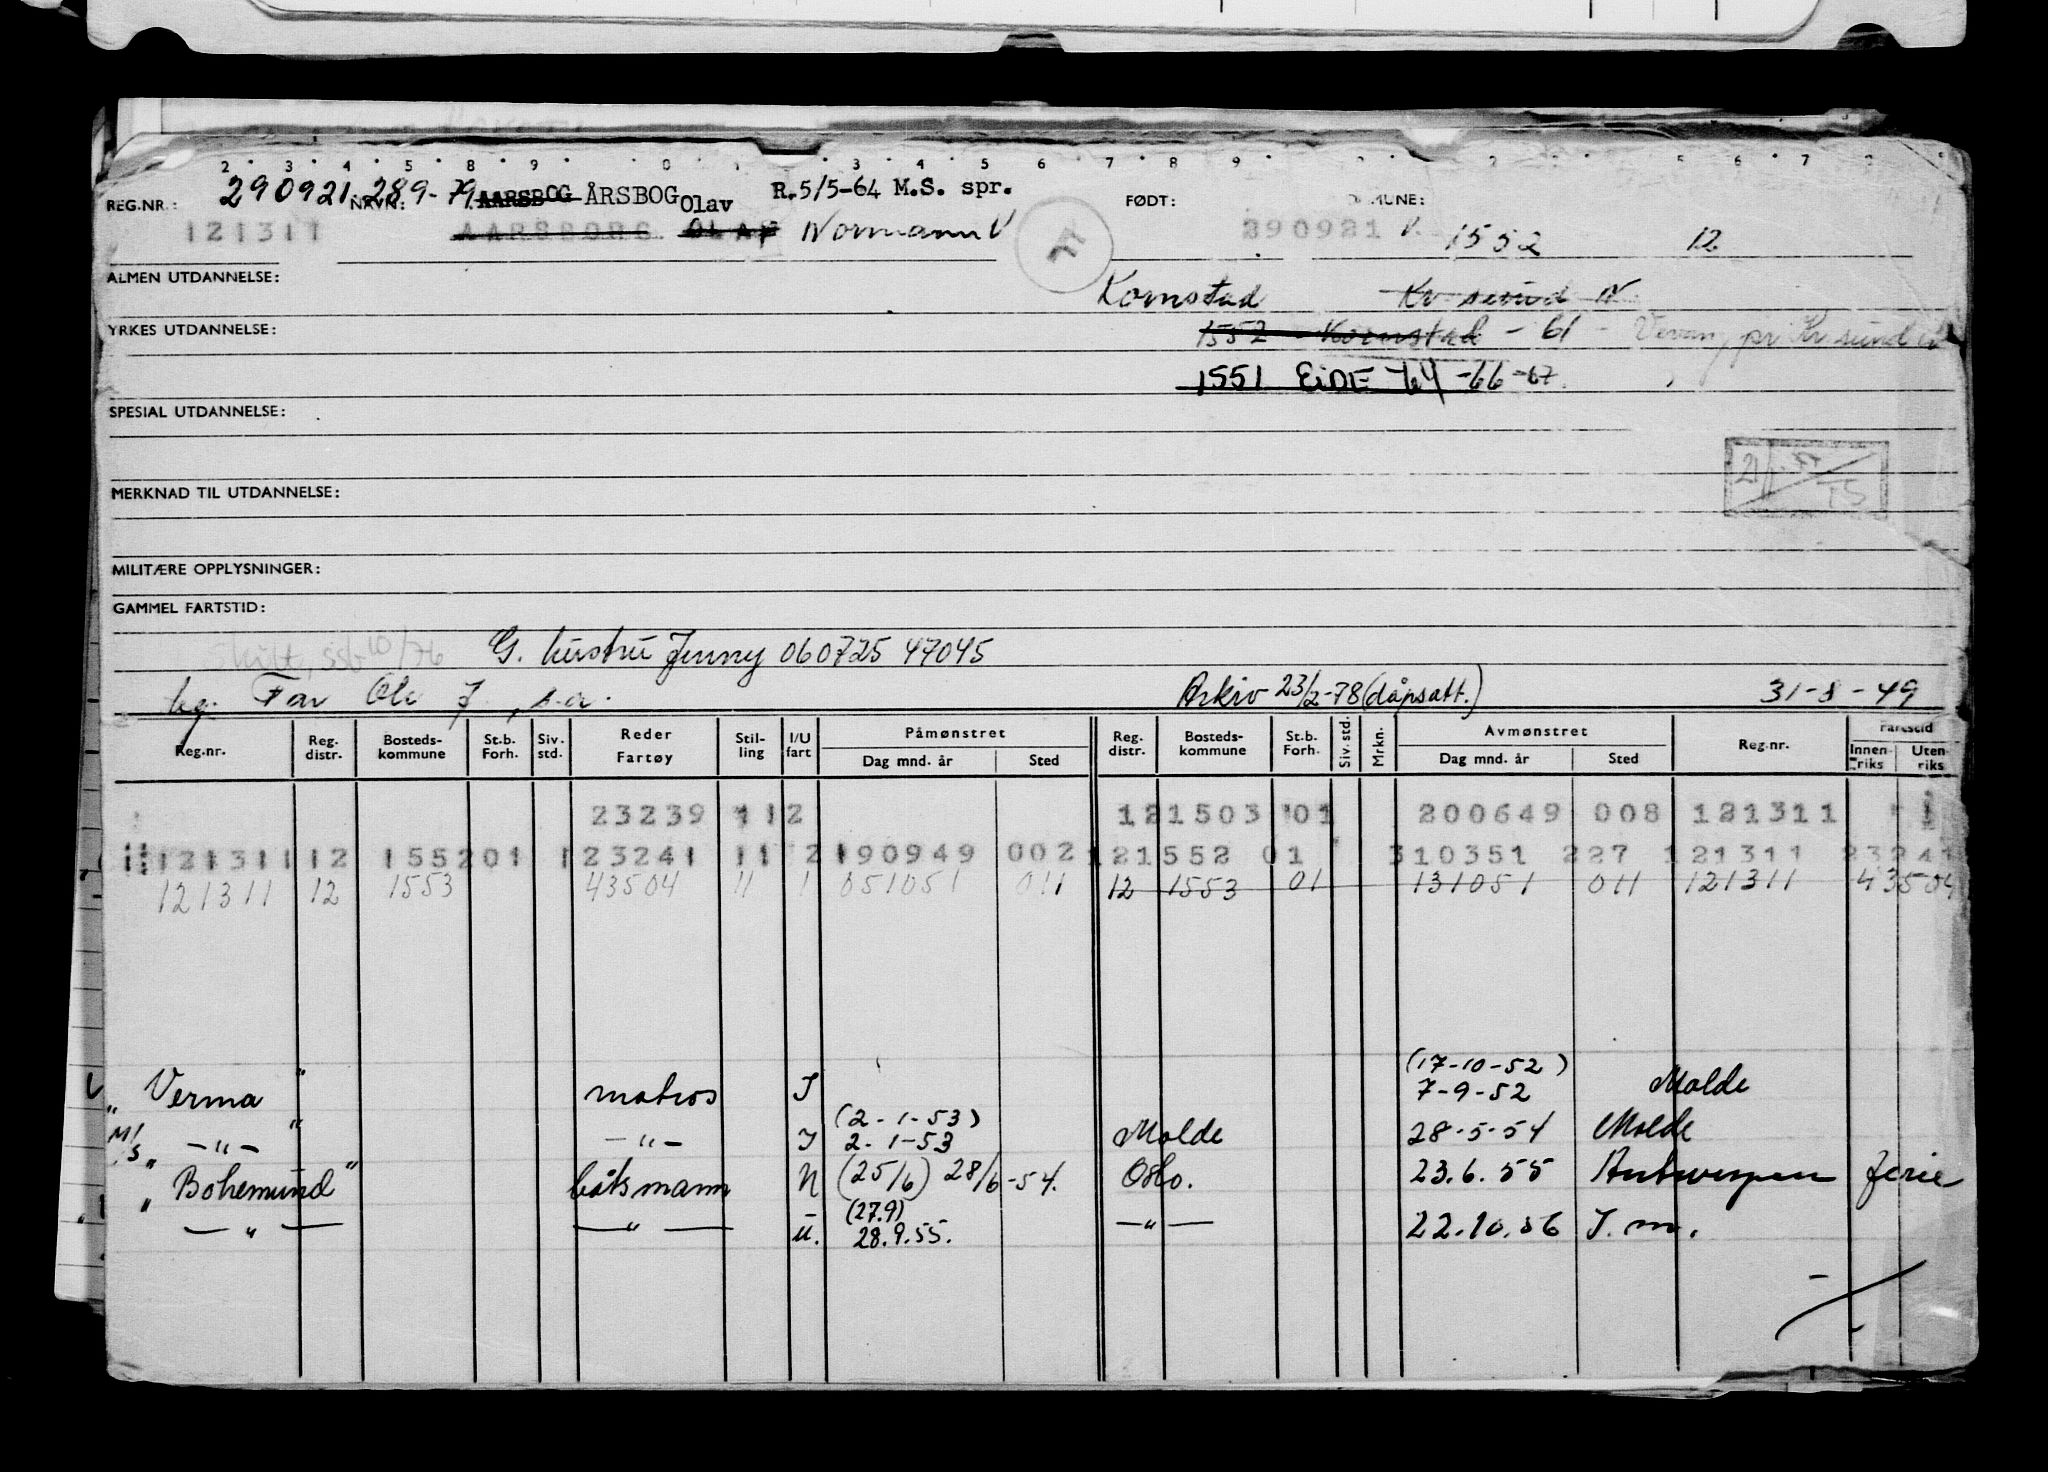 REG.NR.: 290921 289-79 NAVN: AARSBOG ÅRSBOG Olav R.5/5-64 M.S. spr. FØDT: MUNE:
121311 AARSBORG OLAF Normann V 77 290921 1552 12
ALMEN UTDANNELSE:
Kornstad Kr. sund N
YRKES UTDANNELSE: 1552 Kornstad - 61 - Vevang pr Kr sund N
1551 EIDE 64 -66 -67
SPESIAL UTDANNELSE:
MERKNAD TIL UTDANNELSE:
MILITÆRE OPPLYSNINGER:
GAMMEL FARTSTID:
10/76 G. hustru Jenny 060725 47045
Far Ole J s.a. Arkiv 23/2-78 (dåpsatt.) 31-8-49
Reg.nr. Reg. distr. Bosteds- kommune St.b. Forh. Siv. std. Reder Fartøy Stil- ling I/U fart Påmønstret Dag mnd. år Sted Reg. distr. Bosteds- kommune St.b. Forh. Siv. std. Mrkn. Avmønstret Dag mnd. år Sted Reg.nr. Fartstid Innen- riks Uten- riks
23239 11 2 12 1503 01 200649 008 121311 1
121311 12 1552 01 1 23241 11 2 190949 002 121552 01 310351 227 121311 23241
121311 12 1553 43504 11 1 051051 011 12 1553 01 131051 011 121311 43504
(17-10-52)
" Verma " matros I 7-9-52 Molde
(2-1-53)
M/s " -"- " -"- I 2-1-53 Molde 28-5-54 Molde
" Bohemund " båtsmann N (25/6) 28/6-54. Oslo. 23.6.55 Antwerpen ferie
(27.9)
-"- -"- U. 28.9.55. -"- 22.10.56 I.m.